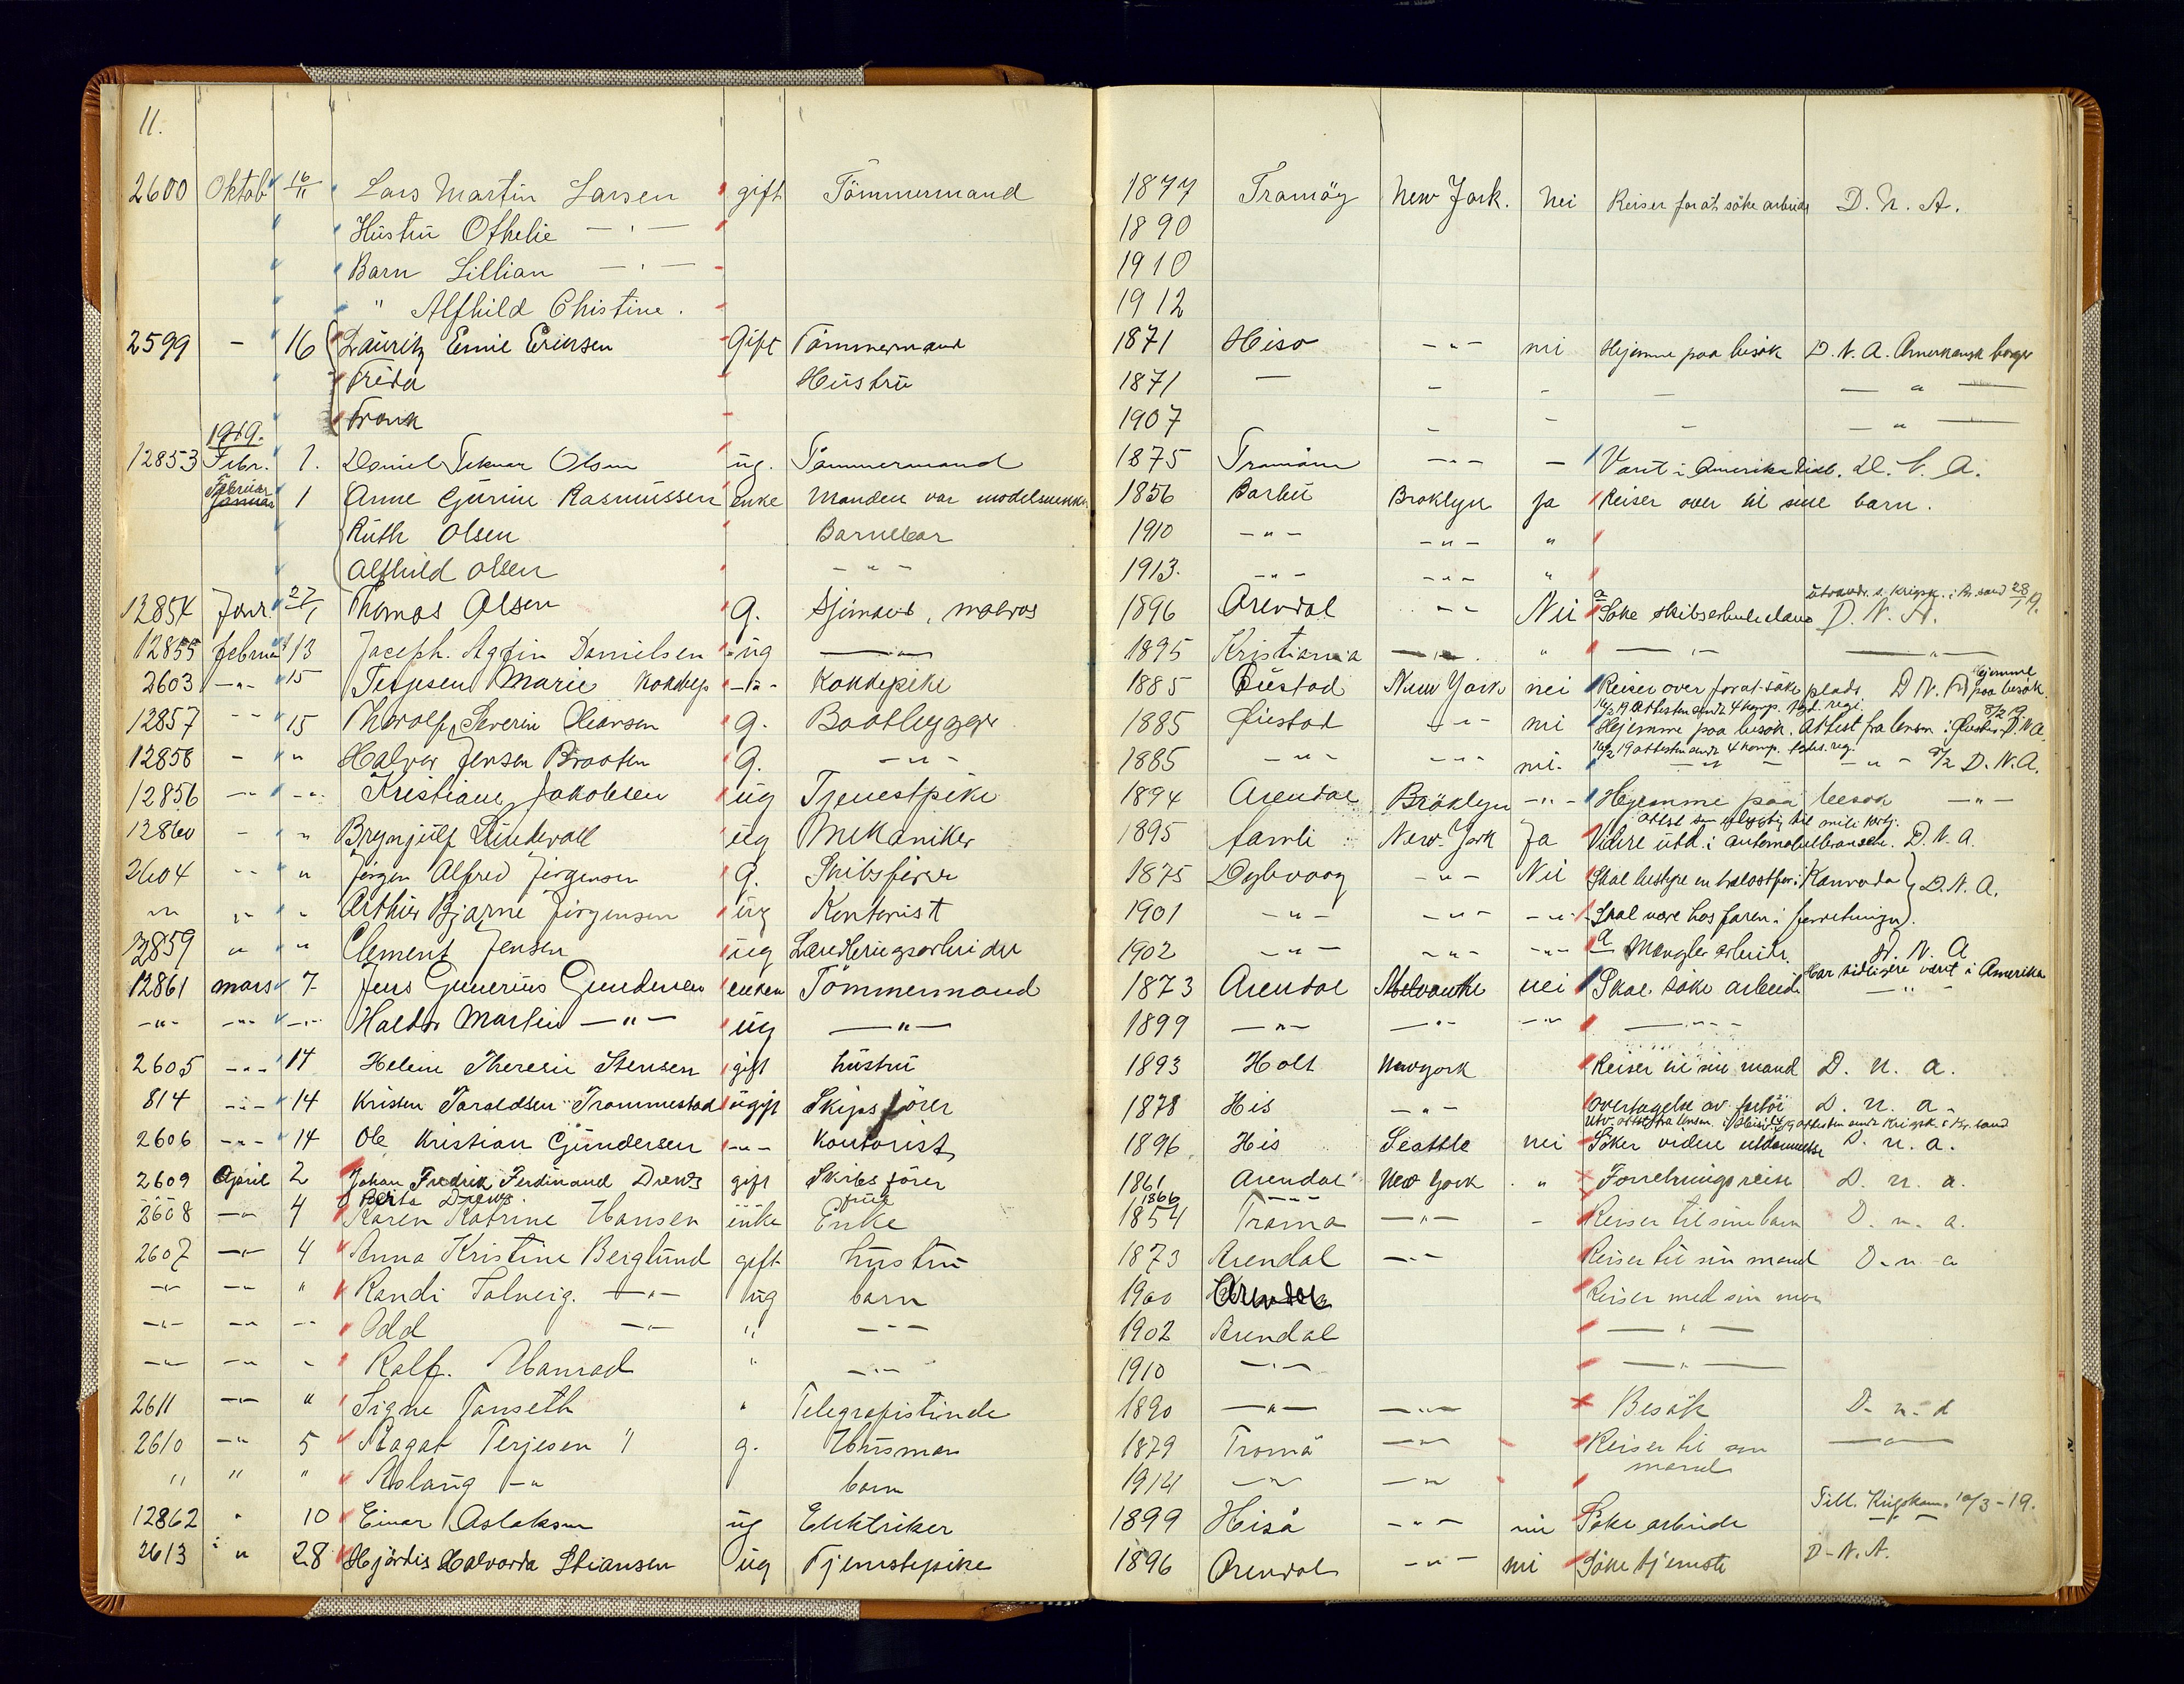 11.
2600 Oktob 16/11 Lars Martin Larsen gift Tömmermand 1877 Tramöy New York. Nei Reiser for at söke arbeide D. N. A.
Hustru Othelie — " — 1890
Barn Lillian — " — 1910
" Alfhild Christine. 1912
2599 - 16 Lauritz Emil Eriksen Gift Tömmermand 1871 Hiso - " - nei Hjemme paa besök D. N. A. Amerikansk borger
Frida Hustru 1871 — - - - — " —
Frank 1907 - - - — " —
1919.
12853 Febr. 1. Daniel Olsen ug. Tömmermand 1875 Tromöen - " - — Vært i Amerika D. N. A.
Februar
Januar 1 Anne Gurine Rasmussen enke Manden var 1856 Barbu Broklyn Ja Reiser over til sine barn.
Ruth Olsen Barnebar 1910 - " - - " - "
Alfhild Olsen - " - 1913. - " - - " - "
12854 Janr. 27/1 Thomas Olsen g. Sjömand, matros 1896 Arendal - " - Nei Söke D. N. A.
12855 februar 13 Joseph. Danielsen ug — " — 1895 Kristiania — " — " — " — — " —
2603 - " - 15 Terjesen Marie - " - Kokkepike 1885 Öiestad New York nei Reiser over for at söke plads. D N. A. Hjemme paa besök.
16/2 19 8/2 19
12857 - " 15 Thorolf Severin g. Baatbygger 1885 Öiestad - " - nei Hjemme paa besök. Attest fra D. N. A.
16/2 19
12858 - " Halvor Jensen Braaten g. - " - 1885 - " - - " - nei. - " - - " - D. N. A.
12856 - " - - " - Kristiane Jakobsen ug Tjenestpike 1894 Arendal Bröklyn - " - Hjemme paa besök - " -
12860 - " Brynjulf Lindevall ug Mekaniker 1895 New-York Ja Videre utd. i automobilbransche. D. N. A.
2604 - " " Jörgen Alfred Jörgensen g. Skibsförer 1875 Dybvaag - " - Nei Skal bestyre en Kanada } D. N. A.
" " " Arthur Bjarne Jörgensen ug Kontorist 1901 - " - - " - - " - Skal være hos faren i forretningen }.
12859 " " Clement Jensen ug 1902 - " - - " - - " - Mangler arbeide. D. N. A
12861 mars 7 Jens Gunerius Gundersen enkem Tömmermand 1873 Arendal nei Skal söke arbeide Har tidligere vært i Amerika - " -
- " - - " - - " - Haldor Martin — " — ug — " — 1899 - " - - " - - " - - " -
2605 - " - 14 Helene Theresie Stensen gift hustru 1893 Holt Newyork Reiser til sin mand D. n. a.
814 - " - 14 Kristen Taraldsen Trommestad ugift Skipsförer 1878 His - " - overtagelse av fartöi D. n. a.
2606 - " - 14 Ole Kristian Gundersen - " - Kontorist 1896 His Seattle nei Söker videre utdannelse D. n. a.
2609 April 2 Johan Fredrik Ferdinand Drews gift Skibsförer 1861 Arendal New York " Forretningsreise D. n. a.
Berta Drews. frue 1866 - " -
2608 - " 4 Karen Katrine Hansen enke Enke 1854 Trama - " - - Reiser til sine barn D. n. a.
2607 - " - 4 Anna Kristine Berglund gift hustru 1873 Arendal - " - Reiser til sin mand D. n a
- " - - " " Randi Solveig. — " — ug barn 1900 Arendal Reiser med sin mor
- " - - " - " Odd — " — " - " - 1902 Arendal — " —
- " - - " " Ralf. Hanrad " - " - 1910 - " - — " —
2611 - " - " Signe Janseth " Telegrafistinde 1890 - " - - " - Besök D. n. a
2610 - " 5 Ragat Terjesen " g. Husmor 1879 Tromö - " - Reiser til sin - " -
mand
" " " Aslaug - " barn 1914 - " - - "
12862 " 10 Einar Aslaksen ug Elektriker 1899 Hisö - " - nei Söke arbeide Till. Krigskom. 10/3-19.
2613 " 28 Hjördis Halvorda Stiansen ug Tjenestepike 1896 Arendal - " - nei Söke tjeneste D-N. A.